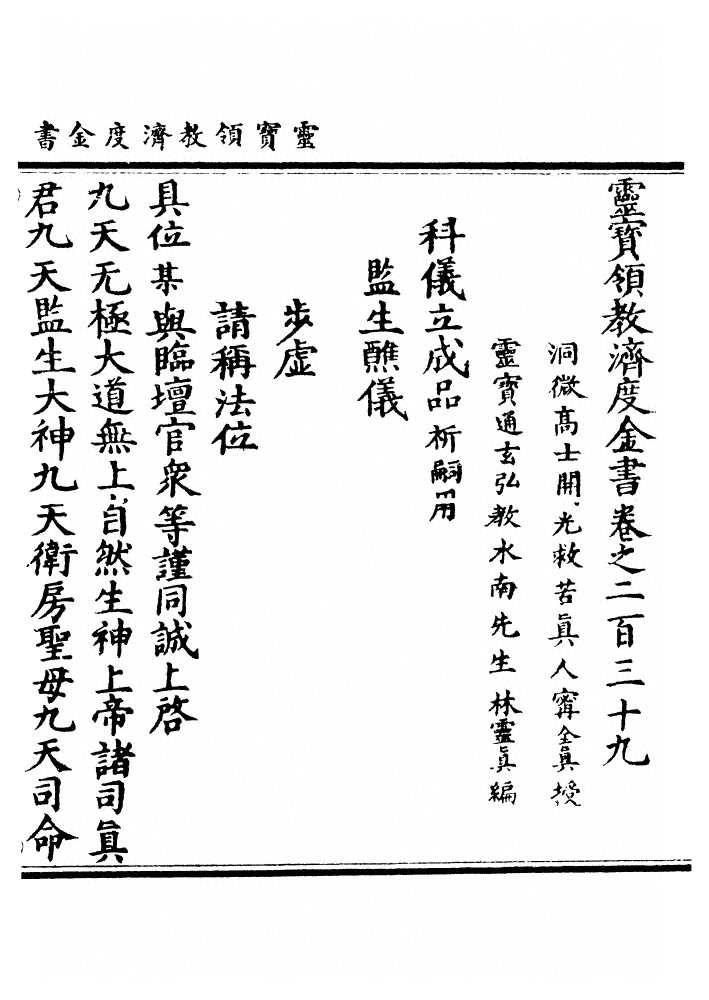 靈寶領教濟度金書
靈寶領教濟度金書卷之二百三十九
洞微高士開光救苦眞人寗全眞授
靈寶通玄弘教水南先生林靈眞編
科儀立成品祈嗣用
監生醮儀
步虛
請稱法位
具位某與臨壇官衆等謹同誠上啓
九天无極大道無上自然生神上帝諸司眞
君九天監生大神九天衛房聖母九天司命